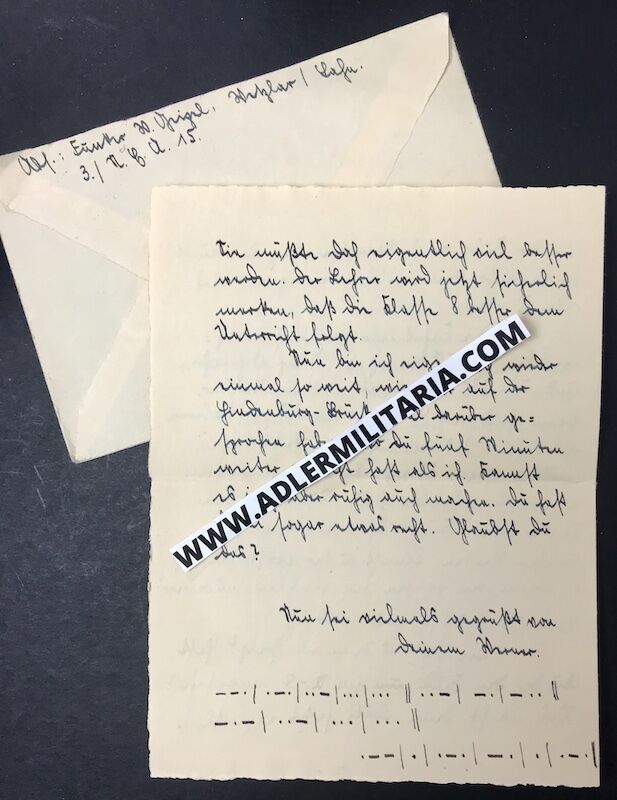 Abs.: Funker W. Geigel, Wetzlar / Lahn.
3./ N. E. A. 15.
Sie müßte doch eigentlich viel besser
werden. Der Lehrer wird jetzt sicherlich
merken, daß die Klasse 8 besser dem
Unterricht folgt.
Nun bin ich wieder
einmal so weit, auf der
Hindenburg-Brück darüber ge=
sprochen du fünf Minuten
weiter hast als ich. Kannst
es aber ruhig auch machen. Du hast
sogar etwas recht. Glaubst du
das?
WWW.ADLERMILITARIA.COM
Nun sei vielmals gegrüßt von
Deinem Werner.
−−·|·−·|··−|···|··· ‖ ··−|−·|−·· ‖
−·−|··−|···|··· ‖
·−−|·|·−·|−·|·|·−·|